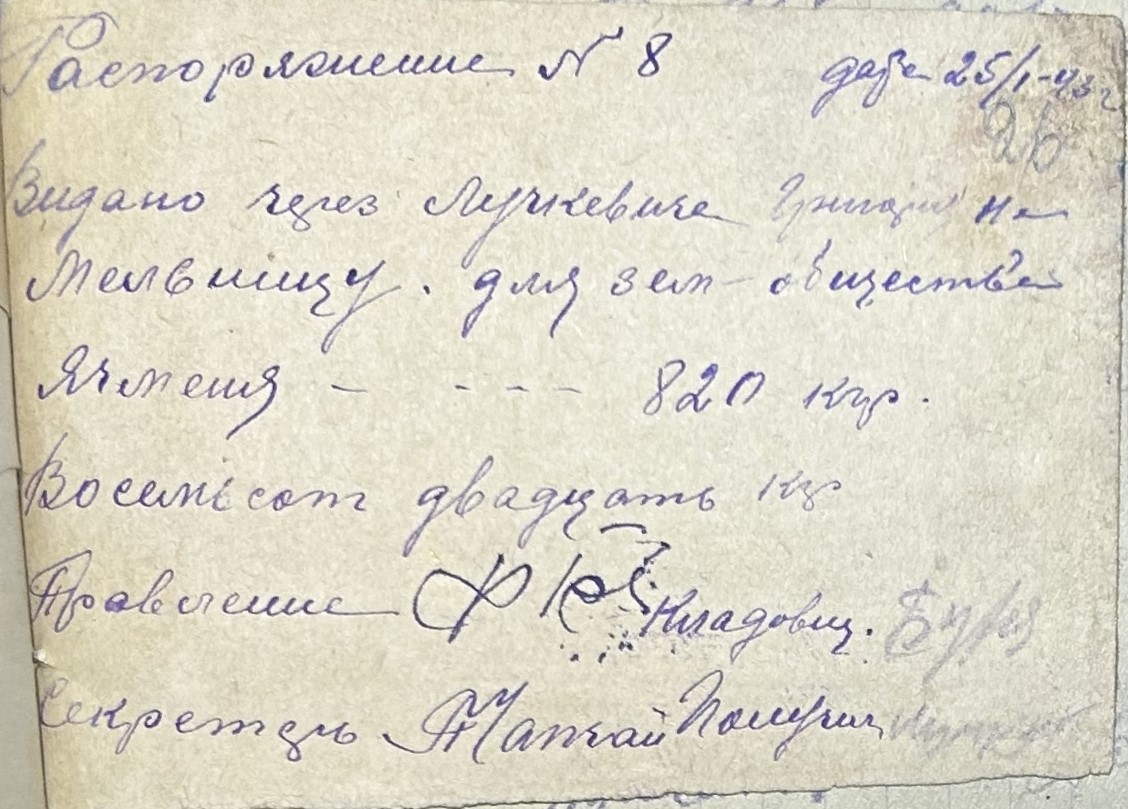 Распоряжение № 8 дата 25/I-43 г
26
Видано через Лучкевича Григория на
Мельницу. для зем-общества
Ячменя - - - - 820 кгр.
Восемьсот двадцать кгр
Правление Кладовщ.
Секретарь Получил